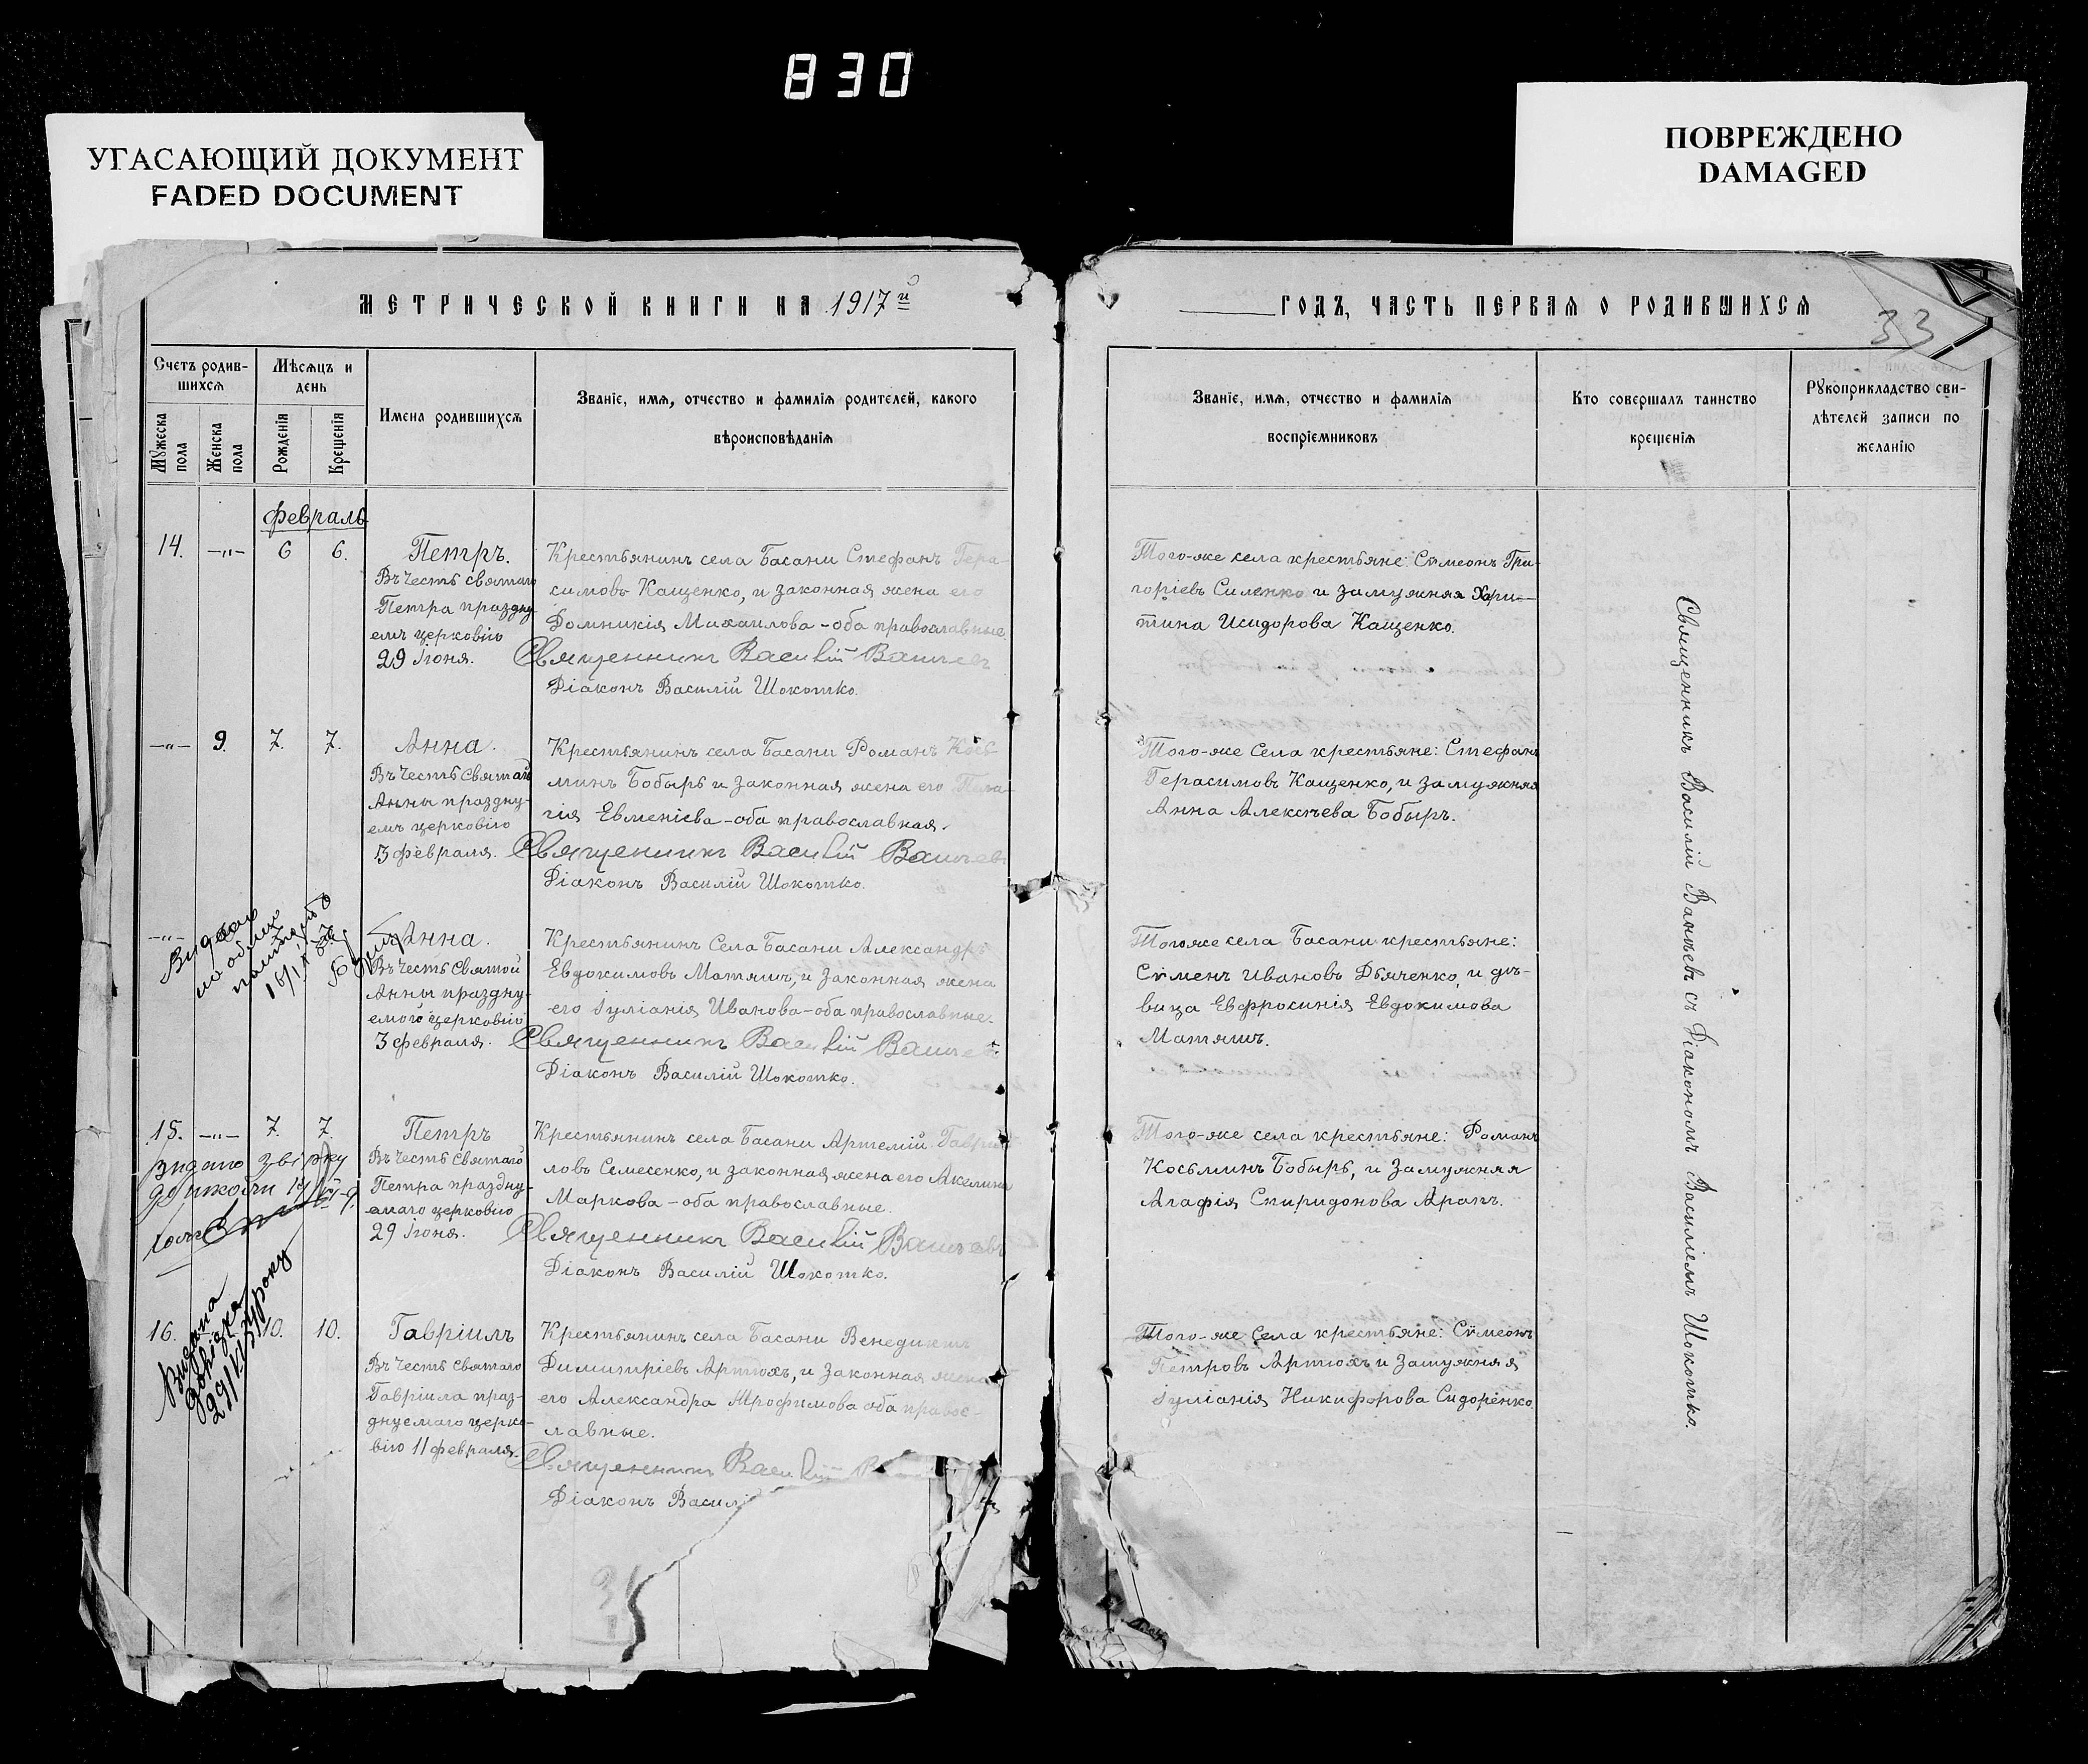 830
УГАСАЮЩИЙ ДОКУМЕНТ
FADED DOCUMENT
ПОВРЕЖДЕНО
DAMAGED
МЕТРИЧЕСКОЙ КНИГИ НА 1917й
ГОДЪ, ЧАСТЬ ПЕРВАЯ О РОДИВШИХСЯ
33
Счетъ родив-
шихся
Мужеска пола
Женска пола
Мѣсяцъ и
день
Рожденія
Крещенія
Имена родившихся
Званіе, имя, отчество и фамилія родителей, какого
вѣроисповѣданія
Званіе, имя, отчество и фамилія
воспріемниковъ
Кто совершалъ таинство
крещенія
Рукоприкладство сви-
дѣтелей записи по
желанію
Февраль
14. —"— 6 6.
Петръ.
Въ честь святаго
Петра праздну-
емъ церковію
29 Іюня.
Крестьянинъ села Басани Стефанъ Гера-
симовъ Кащенко, и законная жена его
Домникія Михаилова - оба православные.
Священникъ Василій
Діаконъ Василій Шокотко.
Того-же села крестьяне: Сѵмеонъ Гри-
горіевъ Силенко и замужняя Хари-
тина Исидорова Кащенко.
—"— 9. 7. 7.
Анна.
Въ честь Святой
Анны праздну-
емъ церковію
13 февраля.
Крестьянинъ села Басани Романъ Кось-
минъ Бобырь и законная жена его Пела-
гія Евменіева - оба православная.
Священникъ Василій
Діаконъ Василій Шокотко.
Того-же Села крестьяне: Стефанъ
Герасимовъ Кащенко, и замужняя
Анна Алексѣева Бобырь.
—"—
Анна.
Въ честь Святой
Анны праздну-
емого церковію
3 февраля.
Крестьянинъ Села Басани Александръ
Евдокимовъ Матяшъ, и законная жена
его Іуліанія Иванова - оба православные.
Священникъ Василій
Діаконъ Василій Шокотко.
Того же села Басани крестьяне:
Сѵменъ Ивановъ Дьяченко, и дѣ-
вица Евфросинія Евдокимова
Матяшъ.
15. —"— 7. 7.
Петръ
Въ честь Святаго
Петра праздну-
емаго церковію
29 Іюня.
Крестьянинъ села Басани Артемій Гаври-
ловъ Семесенко, и законная жена его Акелина
Маркова - оба православные.
Священникъ Василій
Діаконъ Василій Шокотко.
Того-же села крестьяне: Романъ
Косьминъ Бобырь, и замужняя
Агафія Спиридонова Арапъ.
Видана
довідка
16. 10. 10.
Гавріилъ
Въ честь Святаго
Гавріила праз-
днуемаго церко-
вію 11 февраля.
Крестьянинъ села Басани Венедиктъ
Димитріевъ Артюхъ, и законная жена
его Александра Трофимова оба правос-
лавные.
Священникъ Василій
Діаконъ Василі
Того-же Села крестьяне: Сѵмеонъ
Петровъ Артюхъ и замужняя
Іуліанія Никифорова Сидоренко.
Священникъ Василій съ Діакономъ Василіемъ Шокотко.